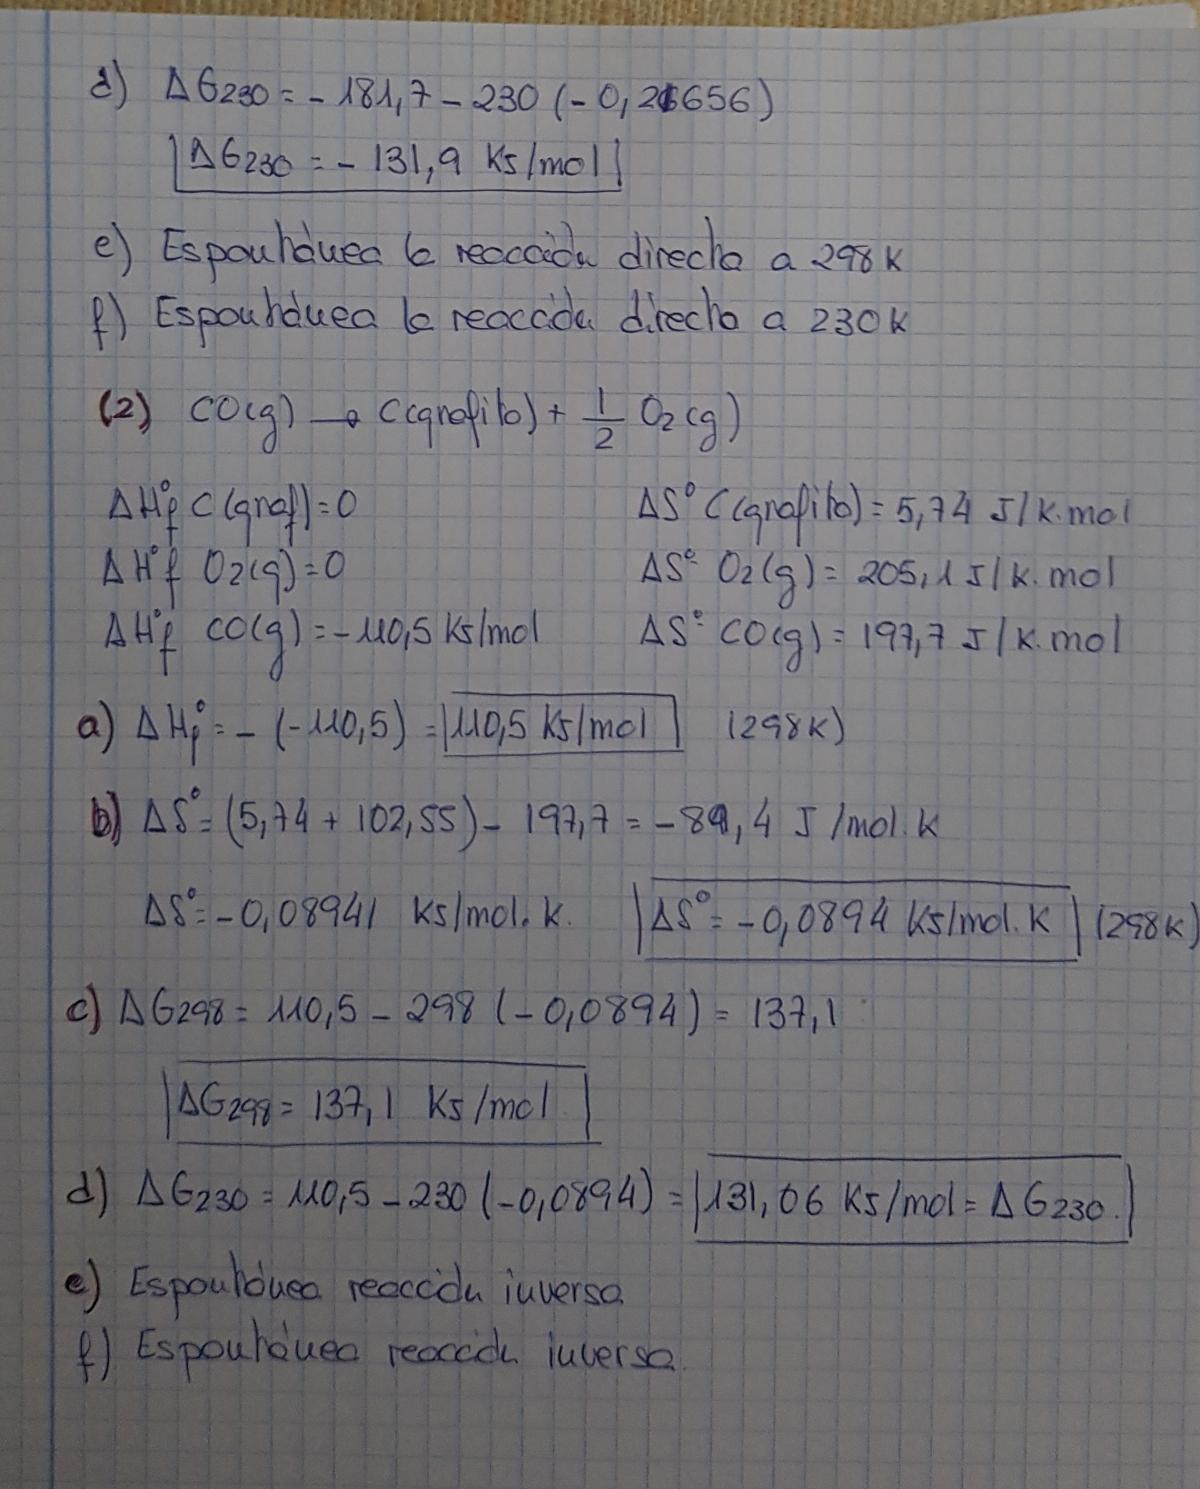 d) ΔG230 = - 181,7 - 230 (- 0,21656)
ΔG230 = - 131,9 KJ/mol
e) Espontánea la reacción directa a 298K
f) Espontánea la reacción directa a 230K
(2) CO(g) → C(grafito) + 1/2 O2(g)
ΔH°f C(graf) = 0 ΔS° C(grafito) = 5,74 J/K.mol
ΔH°f O2(g) = 0 ΔS° O2(g) = 205,1 J/K.mol
ΔH°f CO(g) = -110,5 KJ/mol ΔS° CO(g) = 197,7 J/K.mol
a) ΔHf° = - (-110,5) = 110,5 KJ/mol (298K)
b) ΔS° = (5,74 + 102,55) - 197,7 = -89,4 J/mol.K
ΔS° = -0,08941 KJ/mol.K. ΔS° = -0,0894 KJ/mol.K (298K)
c) ΔG298 = 110,5 - 298 (-0,0894) = 137,1
ΔG298 = 137,1 KJ/mol
d) ΔG230 = 110,5 - 230 (-0,0894) = 131,06 KJ/mol = ΔG230.
e) Espontánea reacción inversa
f) Espontánea reacción inversa.